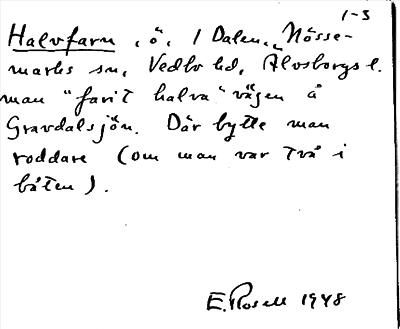 1-3
Halvfarn, ö, i Dalen, Nösse-
marks sn, Vedbo hd, Älvsborgs l.
man "farit halva" vägen å
Gravdalsjön. Där bytte man
roddare (om man var två i
båten).
E. Rosell 1948